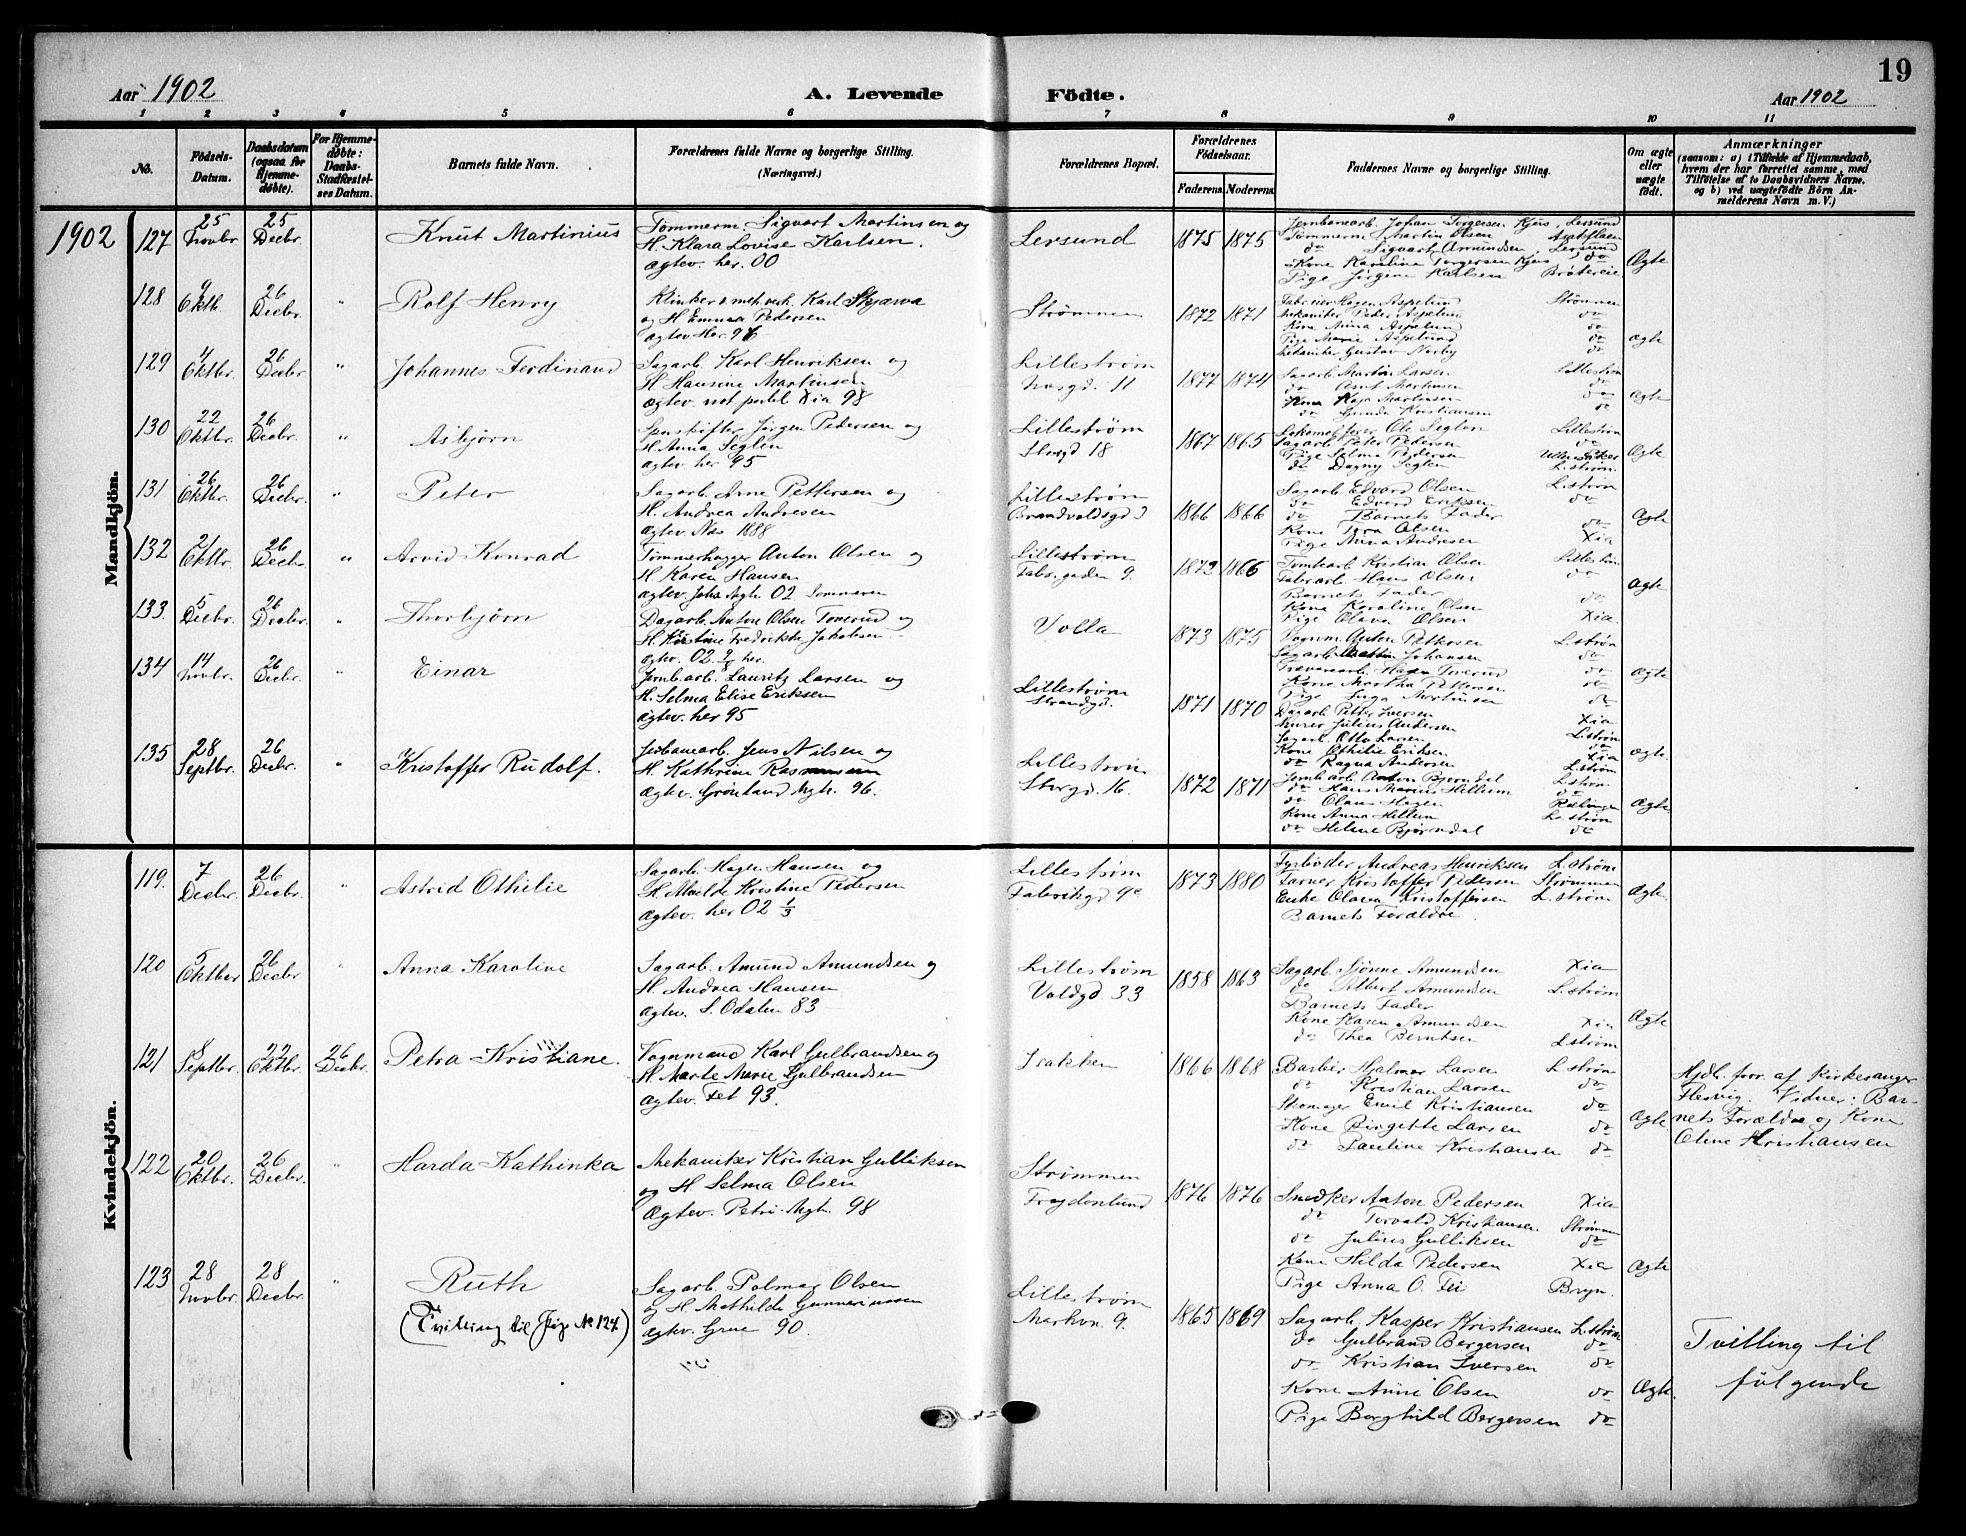 19
Aar 1902
A. Levende Födte.
Aar 1902
1 2 3 4 5 6 7 8 9 10 11
No.
Födsels-Datum.
Daabsdatum (ogsaa for Hjemmedøbte).
For Hjemmedøbte: Daabs-Stadfæstelses Datum.
Barnets fulde Navn.
Forældrenes fulde Navne og borgerlige Stilling. (Næringsvei.)
Forældrenes Bopæl.
Forældrenes Födselsaar.
Faderens. Moderens.
Faddernes Navne og borgerlige Stilling.
Om ægte eller uægte födt.
Anmærkninger
(saasom: a) i Tilfælde af Hjemmedaab, hvem der har forrettet samme, med Tilföielse af to Daabsvidners Navne, og b) ved uægtefödte Börn Anmelderens Navn m. V.)
Mandkjön.
1902
127 25 Novbr. 25 Decbr. Knut Martinius
Tømmerm. Sigvart Martinsen og
H. Klara Lovise Karlsen.
Ægtev. her. 00
Lersund 1875 1875
Jernbanearb. Johan Torgersen Kjus, Lersund
Tømmerm. Martin Olsen
do Sigvart Amundsen, Lersund
Kone Karoline Torgersen Kjus, do
Pige Jørgine Karlsen
Ægte
128 9 Oktb. 26 Decbr. " Rolf Henry
Karl Skjærva
og H. Emma Pedersen
Ægtev. Her. 96
Strømmen 1872 1871
Hagen Aspelund Strømmen
Mekaniker Peder Aspelund do
Kone Anna Aspelund do
Pige Marie Aspelund do
Mekaniker Gustav Norby do
Ægte
129 Oktbr. 26 Decbr. " Johannes Ferdinand
Sagarb. Karl Henriksen og
H. Hansine Martinsen
Ægtev. Xia 98
Lillestrøm 11 1877 1874
Sagarb. Martin Larsen Lillestrøm
do Martinsen do
Kone Kaja Martinsen do
do Gunda Kristiansen do
Ægte
130 22 Oktbr. 26 Decbr. " Asbjørn
Jørgen Pedersen og
H. Anna Seglen
Ægtev. her 95
Lillestrøm
Storgd 18 1867 1865
Ole Seglen Lillestrøm
Sagarb. Peter Pedersen do
Pige Selma Pedersen
do Dagny Seglen L.strøm
Ægte
131 26 Oktbr. 26 Decbr. " Peter
Sagarb. Arne Pettersen og
H. Andrea Andresen
Ægtev. Nas 1888
Lillestrøm
Brandvoldsgd 3 1866 1866
Sagarb. Edvard Olsen L.strøm
do Edvard Eriksen do
do Barnets Fader
Kone Tora Olsen do
Pige Anna Andresen Xia
Ægte
132 21 Oktbr. 26 Decbr. " Arvid Konrad
Tømmerhugger Anton Olsen og
H. Karen Hansen
Ægtev. Johs Mgh. 02
Lillestrøm
Fabr. gaden 9. 1872 1866
Tomtearb. Kristian Olsen Lillestrøm
Fabrarb. Hans Olsen do
Barnets Fader
Kone Karoline Olsen do
Pige Olava Olsen Xia
Ægte
133. 5 Decbr. 26 Decbr. " Thorbjørn
Dagarb. Anton Olsen Toverud og
H. Kristine Fredrikke Jakobsen
Ægtev. 02 9/8 her.
Volla 1873 1875
Vognm. Anton Pettersen L.strøm
Sagarb. Martin Johansen do
Trævarearb. Hagen Toverud do
Kone Martha Pettersen do
Pige Inga Martinsen do
Ægte
134 14 Novbr. 26 Decbr. " Einar
Jernb.arb. Lauritz Larsen og
H. Selma Elise Eriksen
Ægtev. her 95
Lillestrøm
Strandgd. 1871 1870
Dagarb. Petter Iversen
Murer Julius Andersen Xia
Sagarb. Otto Larsen L.strøm
Kone Othilie Eriksen do
do Ragna Andersen Xia
Ægte
135 28 Septbr. 26 Decbr. " Kristoffer Rudolf.
Jerbanearb. Jens Nilsen og
H. Kathrine Rasmussen
Ægtev. Grønland Mgh. 96.
Lillestrøm
Storgd. 16 1872 1871
Jernb.arb. Anton Bjørndal L.strøm
do Hans Marius Hellum do
do Olaus Hagen Rælingen
Kone Anna Hellum L.strøm
do Helene Bjørndal do
Ægte
Kvindekjön.
119. 7 Decbr. 26 Decbr. " Astrid Othilie
Sagarb. Hagen Hansen og
H. Alvilde Kristine Pedersen
Ægtev. her 02 1/3
Lillestrøm
Fabrikgd 9c 1873 1880
Fyrbøder Andreas Henriksen L.strøm
Farver Kristoffer Pedersen Strømmen
Enke Olava Kristoffersen L.strøm
Barnets Forældre.
Ægte
120 5 Oktbr 26 Decbr " Anna Karoline
Sagarb. Amund Amundsen og
H. Andrea Hansen
Ægtev. S. Odalen 83
Lillestrøm
Voldgd 33 1858 1863
Sagarb. Sjønne Amundsen Xia
do Albert Amundsen L.strøm
Barnets Fader
Kone Karen Amundsen Xia
do Thea Berntsen L.strøm
Ægte
121 8 Septbr. 22 Oktbr. 26 Decbr. Petra Kristiane.
Vognmand Karl Gulbrandsen og
H. Marte Marie Gulbrandsen
Ægtev. Fet 93.
Isakken 1866 1868
Barbér Hjalmar Larsen L.strøm
do Kristian Larsen do
Skomager Emil Kristiansen do
Kone Birgitte Larsen do
do Pauline Kristiansen do
Ægte.
Hjdb. forr. af Kirkesanger
Hesvig. Vidner: Bar-
nets Forældre og Kone
Oline Kristiansen
122 20 Oktbr. 26 Decbr. " Harda Kathinka
Mekaniker Kristian Gulliksen
og H. Selma Olsen
Ægtev. Petri. Mgh. 98
Strømmen
Frogdonlund 1876 1876
Snedker Anton Pedersen Xia
do Torvald Kristiansen Strømmen
do Julius Gulliksen do
Kone Hilda Pedersen Xia
Pige Anna O. Fei Bryn.
Ægte
123 28 Novbr. 28 Decbr. " Ruth
(Tvilling til Pige No 124)
Sagarb. Palmar Olsen
og H. Mathilde Gunneriussen
Ægtev. Grue 90.
Lillestrøm
Markvn. 9. 1865 1869
Sagarb. Kasper Kristiansen L.strøm
do Gulbrand Bergersen do
do Kristian Iversen do
Kone Anne Olsen do
Pige Borghild Bergersen do
Ægte.
Tvilling til
følgende